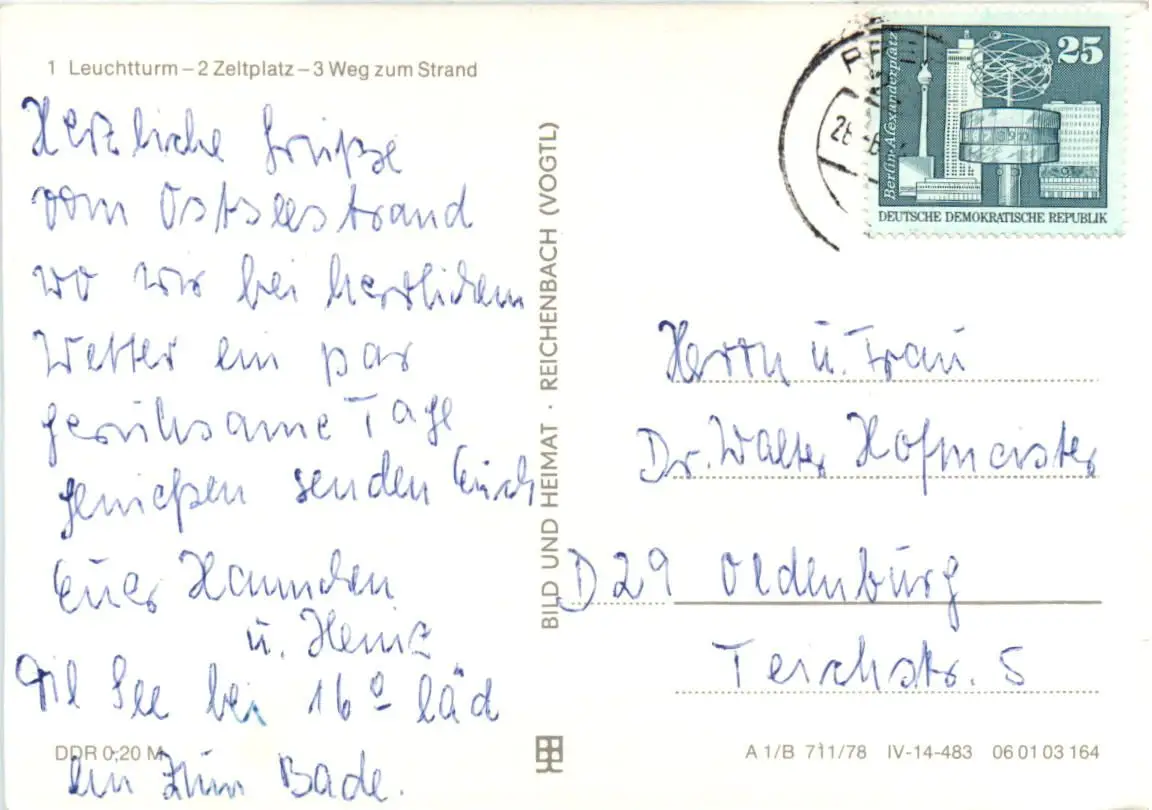 1 Leuchtturm – 2 Zeltplatz – 3 Weg zum Strand
Herzliche Grüße
vom Ostseestrand
wo wir bei herrlichem
Wetter ein par
geruhsame Tage
genießen senden Euch
Euer Hannchen
u. Heinz
See bei 16° läd
ein zum Bade.
DDR 0,20 M
BILD UND HEIMAT · REICHENBACH (VOGTL)
Berlin-Alexanderplatz
25
DEUTSCHE DEMOKRATISCHE REPUBLIK
Herrn u. Frau
Dr. Walter Hofmeister
D 29 Oldenburg
Teichstr. 5
A 1/B 711/78 IV-14-483 06 01 03 164